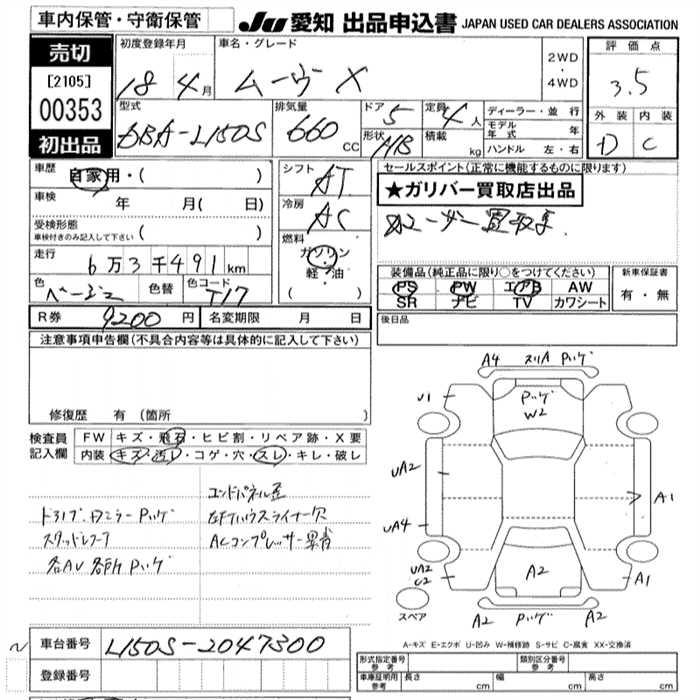 車内保管・守衛保管
JU 愛知 出品申込書 JAPAN USED CAR DEALERS ASSOCIATION
売切
[2105]
00353
初出品
初度登録年月 18 4月
車名・グレード ムーヴ X
2WD
・
4WD
評価点
3.5
外装 内装
D C
型式 DBA-L150S
排気量 660 CC
ドア 5
形状 H/B
定員 4人
積載 kg
ディーラー・並行
モデル年式 年
ハンドル 左・右
車歴 自家用・( )
車検 年 月( 日)
受検形態
車検付きのみ記入して下さい ( )
走行 6万3千491km
色 ベージュ 色替 色コード T17
シフト AT
冷房 AC
燃料
ガソリン
軽・油
( )
セールスポイント(正常に機能するものに限ります)
★ガリバー買取店出品
装備品(純正品に限り○をつけてください)
PS PW エアB AW
SR ナビ TV カワシート
新車保証書
有・無
R券 9200円 名変期限 月 日
後日品
注意事項申告欄(不具合内容等は具体的に記入して下さい)
修復歴 有 (箇所 )
検査員
記入欄
FW キズ・飛石・ヒビ割・リペア跡・X要
内装 キズ・汚レ・コゲ・穴・スレ・キレ・破レ
エンドパネル歪
ドライブ・Dミラー Pハゲ
左Fハウスライナー欠
スタッドレス
ACコンプレッサー異音
各AU 各所 Pハゲ
A4 スリA Pハゲ
U1
Pハゲ
W2
UA2
UA4
A1
UA2
C2
A2
A1
スペア
A2 Pハゲ A2
A-キズ E-エクボ U-凹み W-補修跡 S-サビ C-腐食 XX-交換済
車台番号 L150S-2047300
登録番号
形式指定番号
参考
類別区分番号
参考
車庫証明用
参考
長さ cm 幅 cm 高さ cm